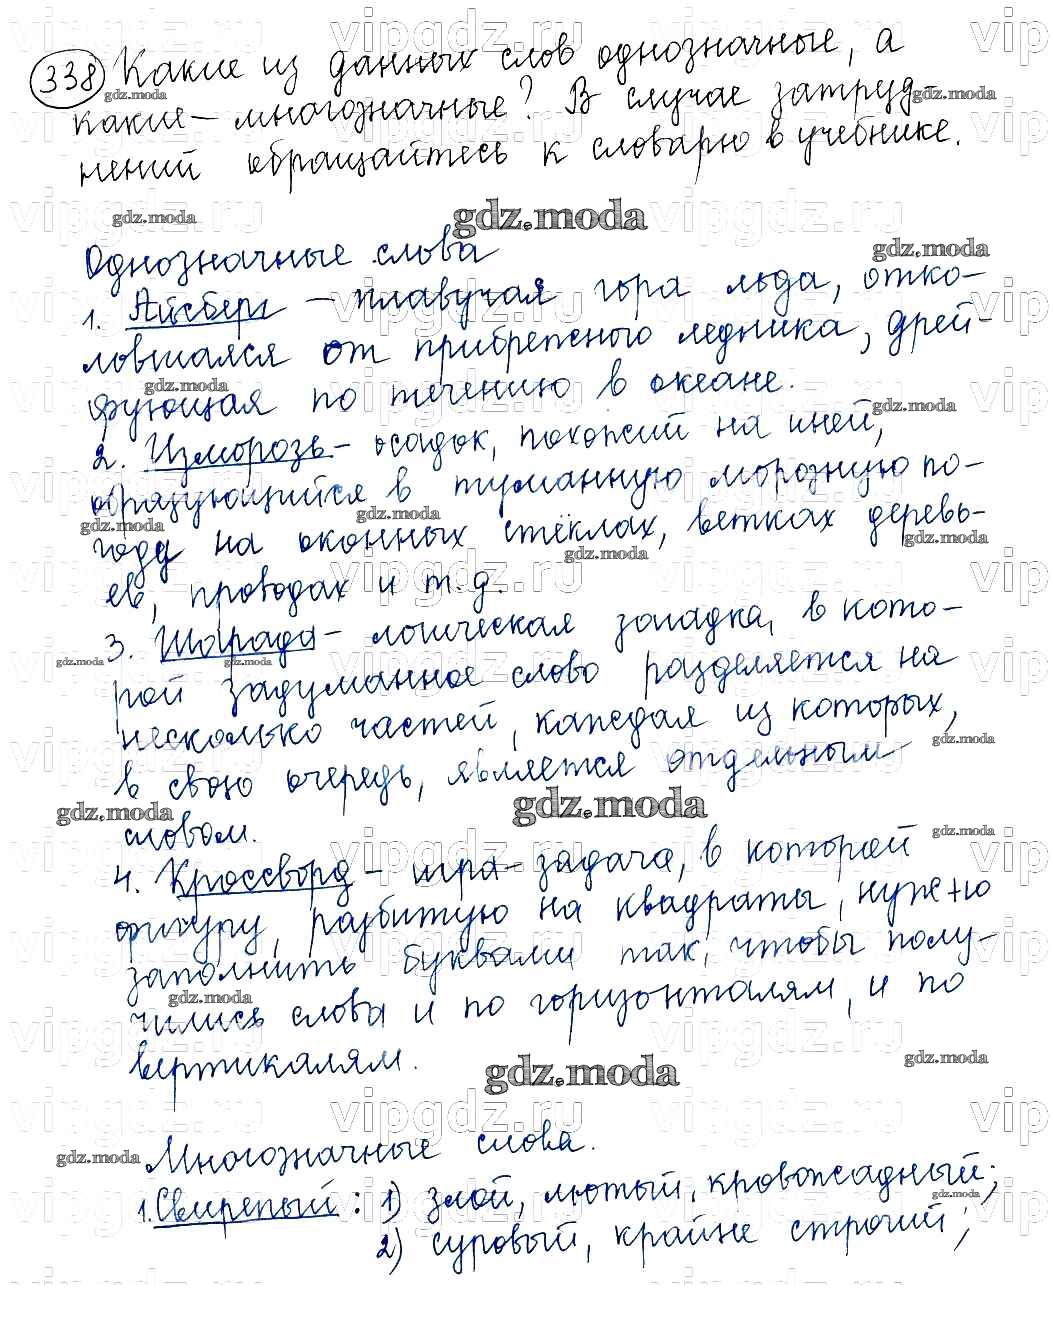 338 Какие из данных слов однозначные, а
какие – многозначные? В случае затруд-
нений обращайтесь к словарю в учебнике.
Однозначные слова
1. Айсберг – плавучая гора льда, отко-
ловшаяся от прибрежного ледника, дрей-
фующая по течению в океане.
2. Изморозь – осадок, похожий на иней,
образующийся в туманную морозную по-
году на оконных стёклах, ветках деревь-
ев, проводах и т.д.
3. Шарада – логическая загадка, в кото-
рой задуманное слово разделяется на
несколько частей, каждая из которых,
в свою очередь, является отдельным
словом.
4. Кроссворд – игра-задача, в которой
фигуру, разбитую на квадраты, нужно
заполнить буквами так, чтобы полу-
чились слова и по горизонталям, и по
вертикалям.
Многозначные слова.
1. Свирепый: 1) злой, лютый, кровожадный;
2) суровый, крайне строгий;